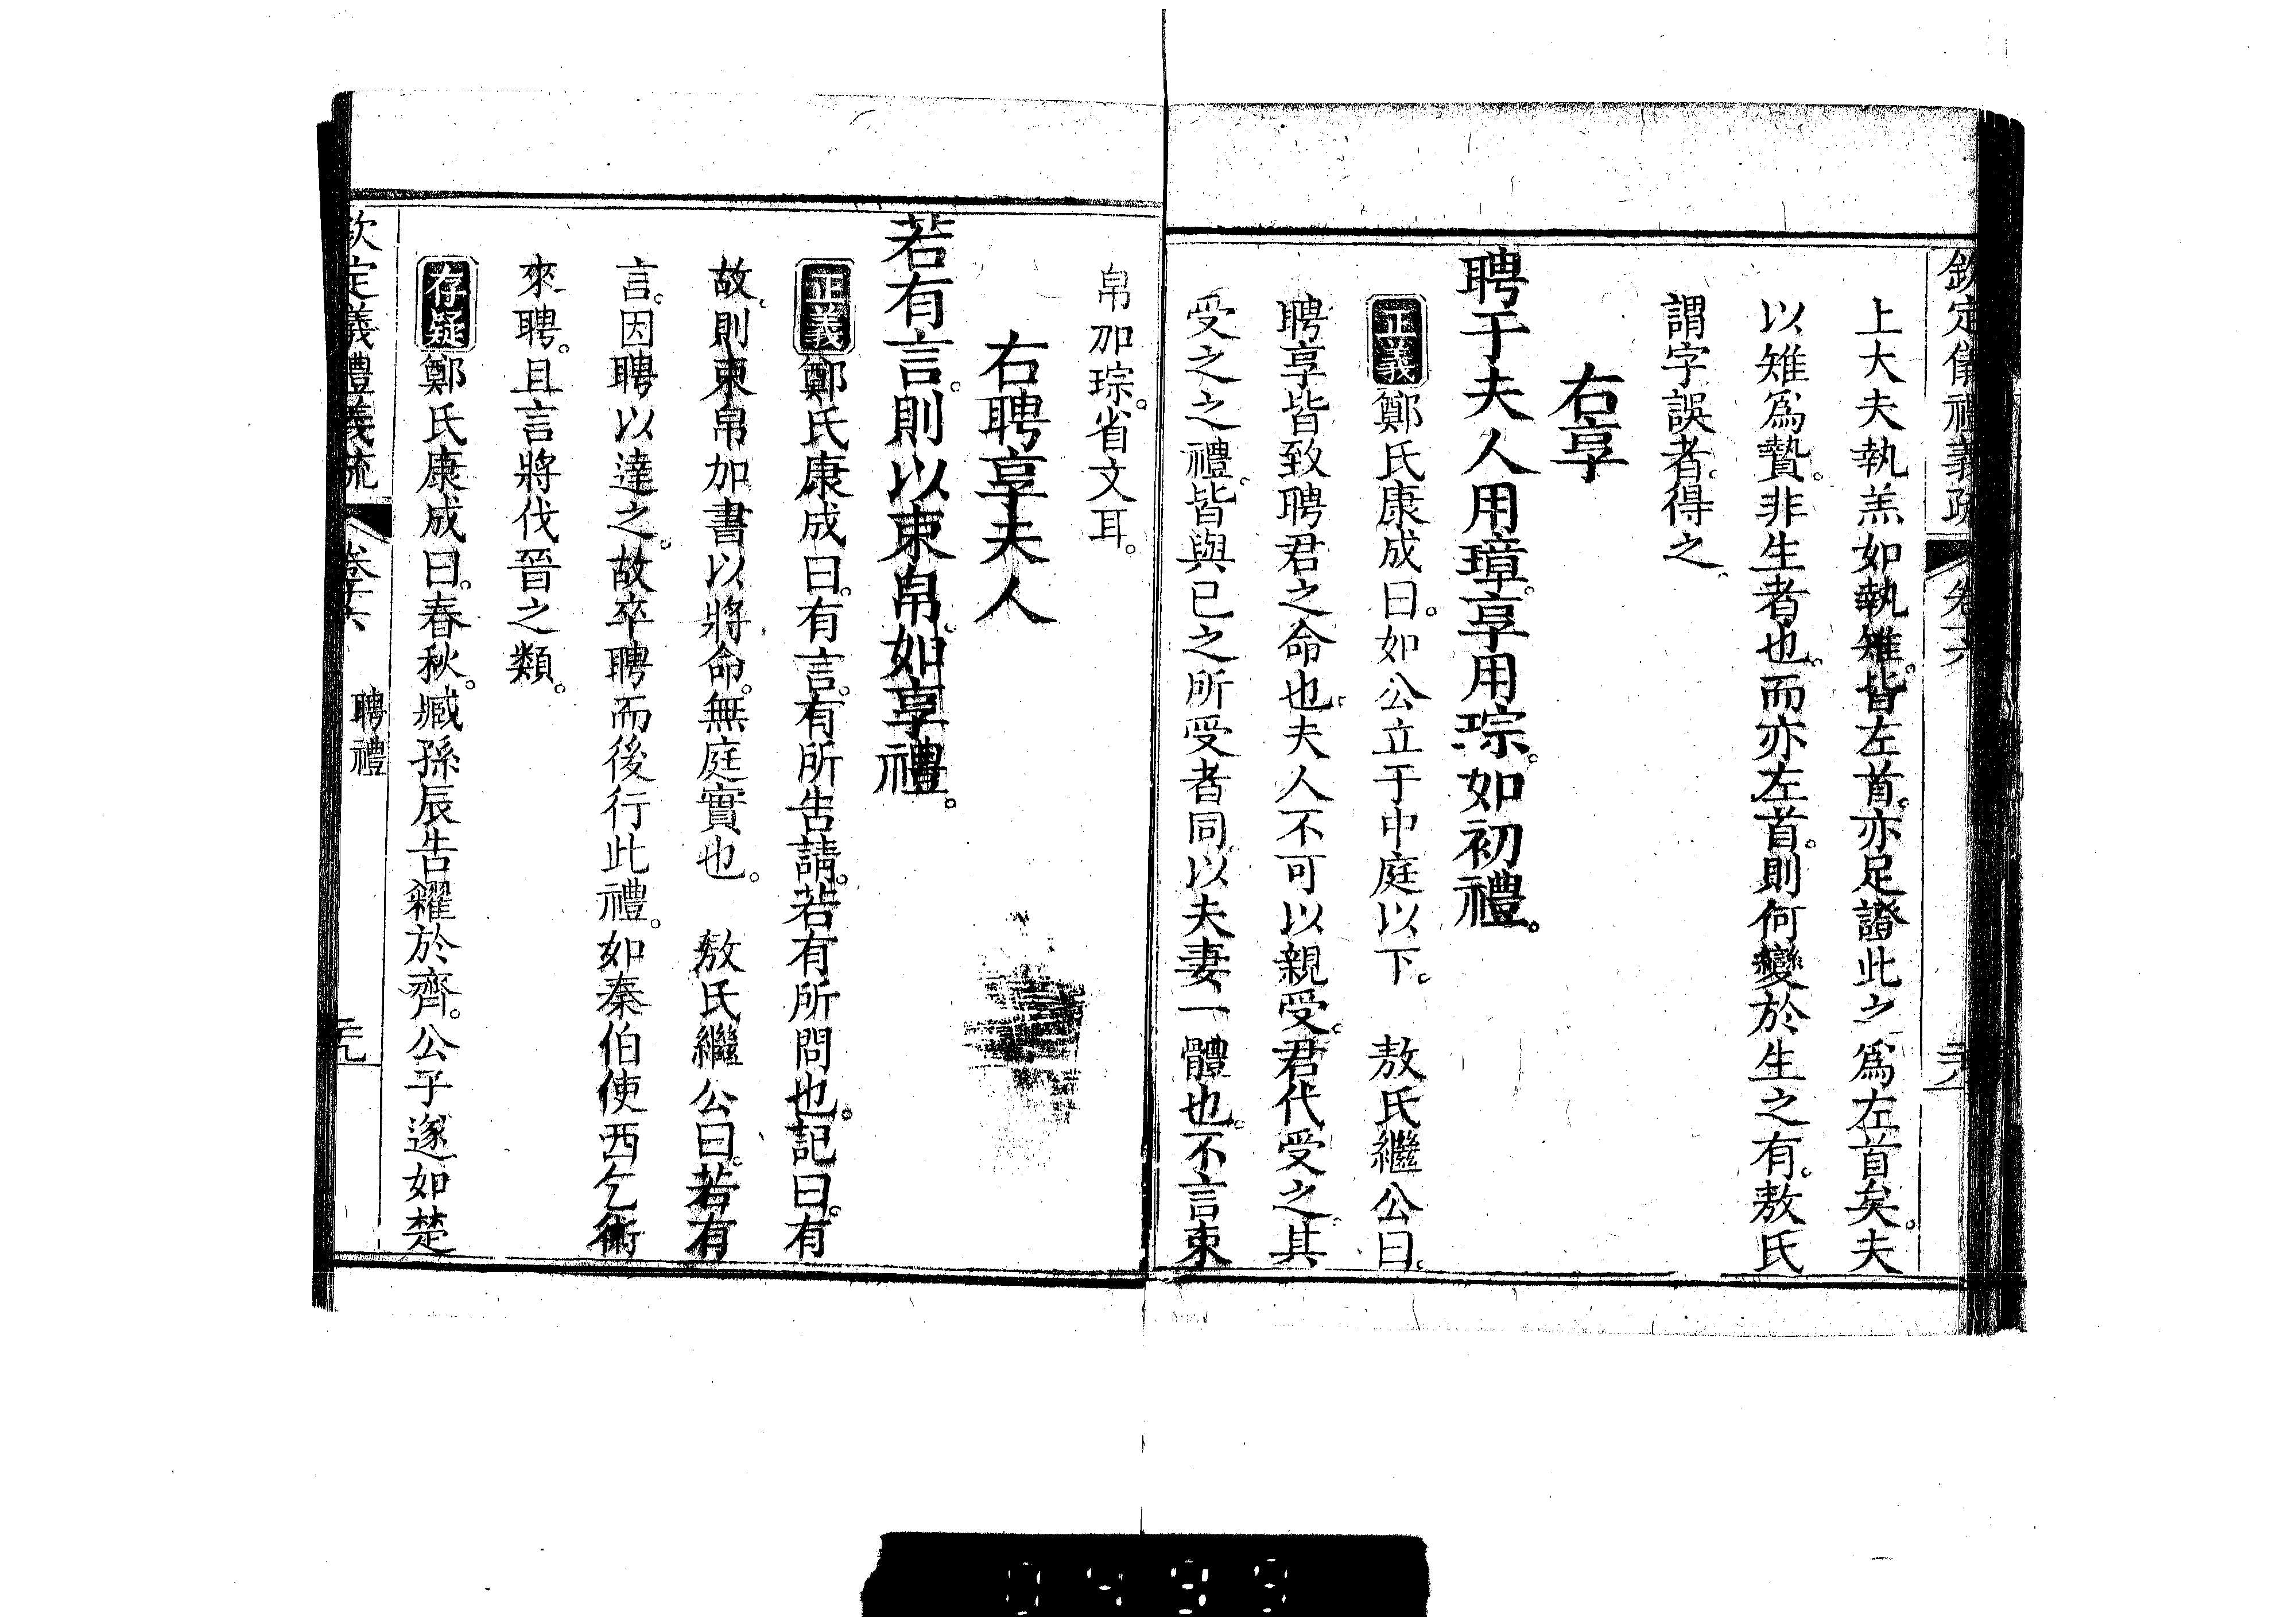 上大夫執羔如執雉。皆左首。亦足證此之爲左首矣。夫
以雉爲贄。非生者也。而亦左首。則何變於生之有。敖氏
謂字誤者。得之。
右享
聘于夫人用璋。享用琮。如初禮。
正義鄭氏康成曰。如公立于中庭以下。 敖氏繼公曰。
聘享皆致聘君之命也。夫人不可以親受。君代受之。其
受之之禮。皆與已之所受者同。以夫妻一體也。不言束
帛加琮。省文耳。
右聘享夫人
若有言。則以束帛。如享禮。
正義鄭氏康成曰。有言。有所告請。若有所問也。記曰。有
故。則束帛加書以將命。無庭實也。 敖氏繼公曰。若有
言。因聘以達之。故卒聘而後行此禮。如秦伯使西乞術
來聘。且言將伐晉之類。
存疑鄭氏康成曰。春秋。臧孫辰告糴於齊。公子遂如楚
欽定儀禮義疏 卷十六 聘禮